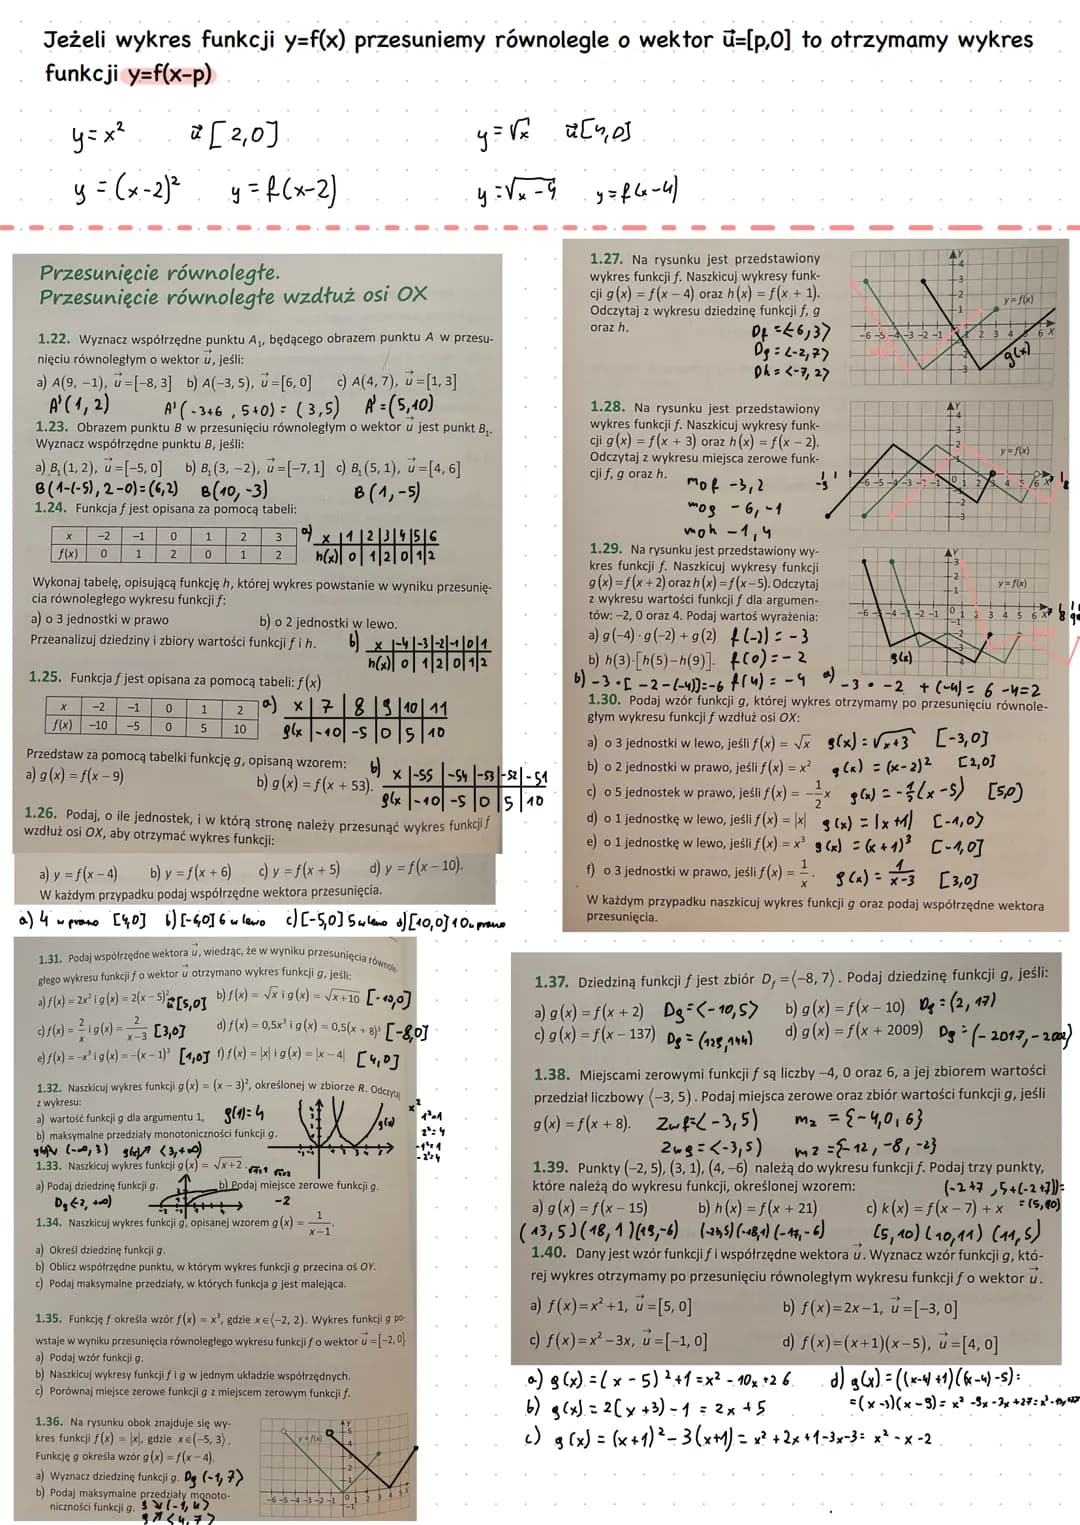 Jeżeli wykres funkcji y=f(x) przesuniemy równolegle o wektor u⃗=[p,0] to otrzymamy wykres
funkcji y=f(x-p)
y = x² u⃗ [2,0]
y = √x u⃗[4,0]
y = (x-2)² y = f(x-2)
y = √x-4 y = f(x-4)
Przesunięcie równoległe.
Przesunięcie równoległe wzdłuż osi OX
1.22. Wyznacz współrzędne punktu A₁, będącego obrazem punktu A w przesu-
nięciu równoległym o wektor u⃗, jeśli:
a) A(9, −1), u⃗ =[−8, 3] b) A(−3, 5), u⃗ =[6, 0] c) A(4, 7), u⃗ =[1, 3]
A'(1,2) A'(-3+6, 5+0) = (3,5) A' = (5,10)
1.23. Obrazem punktu B w przesunięciu równoległym o wektor u⃗ jest punkt B₁.
Wyznacz współrzędne punktu B, jeśli:
a) B₁(1, 2), u⃗ =[−5, 0] b) B₁(3, −2), u⃗ =[−7, 1] c) B₁(5, 1), u⃗ =[4, 6]
B(1-(-5), 2-0)=(6,2) B(10,-3) B(1,-5)
1.24. Funkcja f jest opisana za pomocą tabeli:
x −2 −1 0 1 2 3
f(x) 0 1 2 0 1 2
a) x 1 2 3 4 5 6
h(x) 0 1 2 0 1 2
Wykonaj tabelę, opisującą funkcję h, której wykres powstanie w wyniku przesunię-
cia równoległego wykresu funkcji f:
a) o 3 jednostki w prawo b) o 2 jednostki w lewo.
Przeanalizuj dziedziny i zbiory wartości funkcji f i h.
b) x -4 -3 -2 -1 0 1
h(x) 0 1 2 0 1 2
1.25. Funkcja f jest opisana za pomocą tabeli: f(x)
x −2 −1 0 1 2
f(x) −10 −5 0 5 10
a) x 7 8 9 10 11
g(x -10 -5 0 5 10
Przedstaw za pomocą tabelki funkcję g, opisaną wzorem:
a) g(x) = f(x − 9) b) g(x) = f(x + 53).
b) x -55 -54 -53 -52 -51
g(x -10 -5 0 5 10
1.26. Podaj, o ile jednostek, i w którą stronę należy przesunąć wykres funkcji f
wzdłuż osi OX, aby otrzymać wykres funkcji:
a) y = f(x − 4) b) y = f(x + 6) c) y = f(x + 5) d) y = f(x − 10).
W każdym przypadku podaj współrzędne wektora przesunięcia.
a) 4 w prawo [4,0] b) [-6,0] 6 w lewo c) [-5,0] 5 w lewo d) [10,0] 10 w prawo
1.27. Na rysunku jest przedstawiony
wykres funkcji f. Naszkicuj wykresy funk-
cji g(x) = f(x − 4) oraz h(x) = f(x + 1).
Odczytaj z wykresu dziedzinę funkcji f, g
oraz h.
Df = <-6,3>
Dg = <-2,7>
Dh = <-7,2>
y = f(x)
g(x)
1.28. Na rysunku jest przedstawiony
wykres funkcji f. Naszkicuj wykresy funk-
cji g(x) = f(x + 3) oraz h(x) = f(x − 2).
Odczytaj z wykresu miejsca zerowe funk-
cji f, g oraz h.
mof -3,2
mog -6,-1
moh -1,4
y = f(x)
1.29. Na rysunku jest przedstawiony wy-
kres funkcji f. Naszkicuj wykresy funkcji
g(x) = f(x + 2) oraz h(x) = f(x − 5). Odczytaj
z wykresu wartości funkcji f dla argumen-
tów: −2, 0 oraz 4. Podaj wartoś wyrażenia:
a) g(−4) · g(−2) + g(2) f(-2) = -3
b) h(3)·[h(5)−h(9)]. f(0) = -2
y = f(x)
g(x)
b) -3·[-2-(-4)]=-6 f(4) = -4 a) -3 · -2 + (-4) = 6 -4=2
1.30. Podaj wzór funkcji g, której wykres otrzymamy po przesunięciu równole-
głym wykresu funkcji f wzdłuż osi OX:
a) o 3 jednostki w lewo, jeśli f(x) = √x g(x) = √x+3 [-3,0]
b) o 2 jednostki w prawo, jeśli f(x) = x² g(x) = (x-2)² [2,0]
c) o 5 jednostek w prawo, jeśli f(x) = −1/2x g(x) = -1/2(x-5) [5,0]
d) o 1 jednostkę w lewo, jeśli f(x) = |x| g(x) = |x+1| [-1,0]
e) o 1 jednostkę w lewo, jeśli f(x) = x³ g(x) = (x+1)³ [-1,0]
f) o 3 jednostki w prawo, jeśli f(x) = 1/x. g(x) = 1/x-3 [3,0]
W każdym przypadku naszkicuj wykres funkcji g oraz podaj współrzędne wektora
przesunięcia.
1.31. Podaj współrzędne wektora u⃗, wiedząc, że w wyniku przesunięcia równole-
głego wykresu funkcji f o wektor u⃗ otrzymano wykres funkcji g, jeśli:
a) f(x) = 2x² i g(x) = 2(x − 5)² u⃗[5,0] b) f(x) = √x i g(x) = √x+10 [-10,0]
c) f(x) = 2/x i g(x) = 2/x−3 [3,0] d) f(x) = 0,5x³ i g(x) = 0,5(x + 8)³ [-8,0]
e) f(x) = −x³ i g(x) = −(x − 1)³ [1,0] f) f(x) = |x| i g(x) = |x − 4| [4,0]
1.32. Naszkicuj wykres funkcji g(x) = (x − 3)², określonej w zbiorze R. Odczytaj
z wykresu:
a) wartość funkcji g dla argumentu 1, g(1)=4
b) maksymalne przedziały monotoniczności funkcji g.
g(x)↘ (-∞,3) g(x)↗ <3,+∞)
1.33. Naszkicuj wykres funkcji g(x) = √x+2.
a) Podaj dziedzinę funkcji g. b) Podaj miejsce zerowe funkcji g.
-2
1.34. Naszkicuj wykres funkcji g, opisanej wzorem g(x) = 1/x−1.
a) Określ dziedzinę funkcji g.
b) Oblicz współrzędne punktu, w którym wykres funkcji g przecina oś OY.
c) Podaj maksymalne przedziały, w których funkcja g jest malejąca.
1.35. Funkcję f określa wzór f(x) = x³, gdzie x∈(−2, 2). Wykres funkcji g po-
wstaje w wyniku przesunięcia równoległego wykresu funkcji f o wektor u⃗ =[−2, 0]
a) Podaj wzór funkcji g.
b) Naszkicuj wykresy funkcji f i g w jednym układzie współrzędnych.
c) Porównaj miejsce zerowe funkcji g z miejscem zerowym funkcji f.
1.36. Na rysunku obok znajduje się wy-
kres funkcji f(x) = |x|, gdzie x∈(−5, 3).
Funkcję g określa wzór g(x) = f(x − 4).
a) Wyznacz dziedzinę funkcji g. Dg (-1,7>
b) Podaj maksymalne przedziały monoto-
niczności funkcji g. g ↘ (-1,4>
g ↗ <4,7>
y = f(x)
1.37. Dziedziną funkcji f jest zbiór Df =⟨−8, 7). Podaj dziedzinę funkcji g, jeśli:
a) g(x) = f(x + 2) Dg=<-10,5> b) g(x) = f(x − 10) Dg = (2, 17)
c) g(x) = f(x − 137) d) g(x) = f(x + 2009)
1.38. Miejscami zerowymi funkcji f są liczby −4, 0 oraz 6, a jej zbiorem wartości
przedział liczbowy ⟨−3, 5). Podaj miejsca zerowe oraz zbiór wartości funkcji g, jeśli
g(x) = f(x + 8). Zwf=<-3,5) mz = {-4,0,6}
Zwg=<-3,5) mz = {-12,-8,-2}
1.39. Punkty (−2, 5), (3, 1), (4, −6) należą do wykresu funkcji f. Podaj trzy punkty,
które należą do wykresu funkcji, określonej wzorem: (-2+7, 5+(-2+7))=
a) g(x) = f(x − 15) b) h(x) = f(x + 21) c) k(x) = f(x − 7) + x =(5,10)
(13,5)(18,1)(19,-6) (-23,5)(-18,1)(-17,-6) (5,10)(10,11)(11,5)
1.40. Dany jest wzór funkcji f i współrzędne wektora u⃗. Wyznacz wzór funkcji g, któ-
rej wykres otrzymamy po przesunięciu równoległym wykresu funkcji f o wektor u⃗.
a) f(x)=x²+1, u⃗=[5, 0] b) f(x)=2x−1, u⃗=[−3, 0]
c) f(x)=x²−3x, u⃗=[−1, 0] d) f(x)=(x+1)(x−5), u⃗=[4, 0]
a) g(x) = (x-5)²+1 = x² - 10x + 26 d) g(x) = ((x-4)+1)((x-4)-5) =
b) g(x) = 2(x+3)-1 = 2x+5 =(x-3)(x-9) = x² -9x -3x +27
c) g(x) = (x+1)² - 3(x+1) = x² + 2x + 1 - 3x - 3 = x² - x - 2